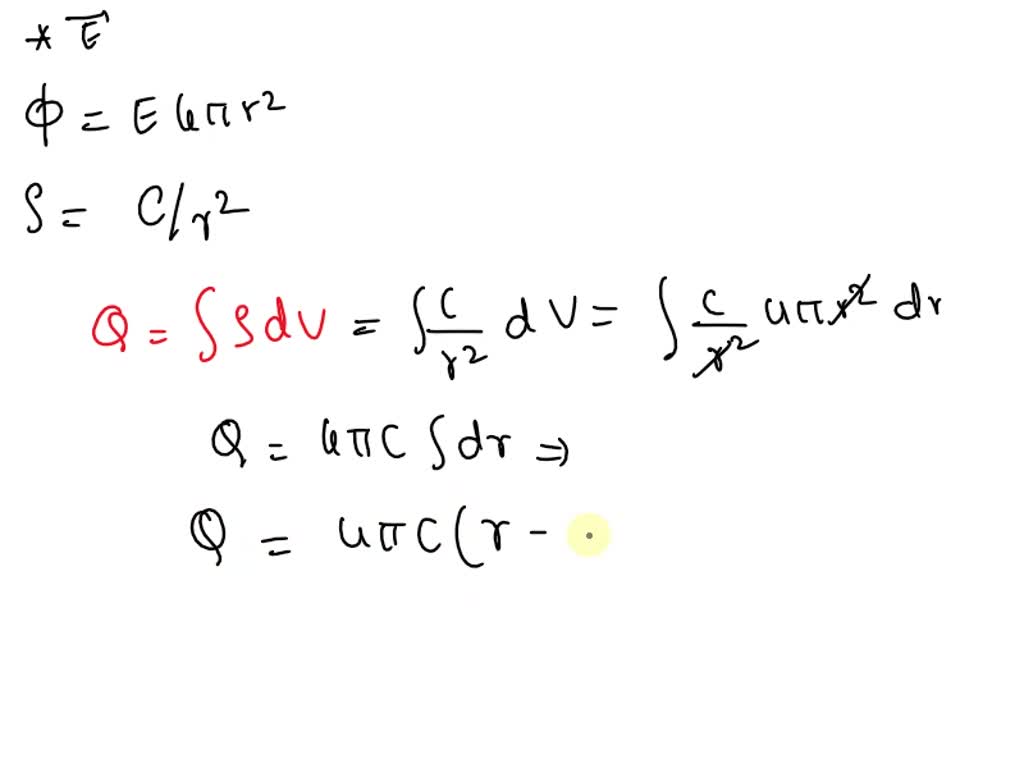 * E⃗
φ = E 4πr²
ρ = C/r²
Q = ∫ρdV = ∫C/r² dV = ∫ C/r² 4πr² dr
Q = 4πC ∫dr ⇒
Q = 4πC(r -